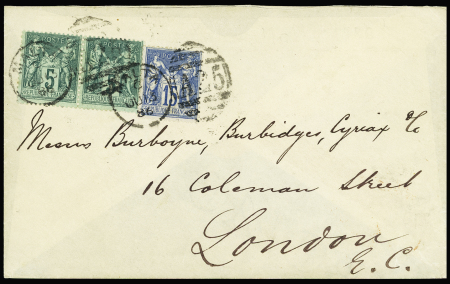 5 5 15
Messrs Burboyne, Burbidges, Cyriax &c
16 Coleman Street
London
E.C.